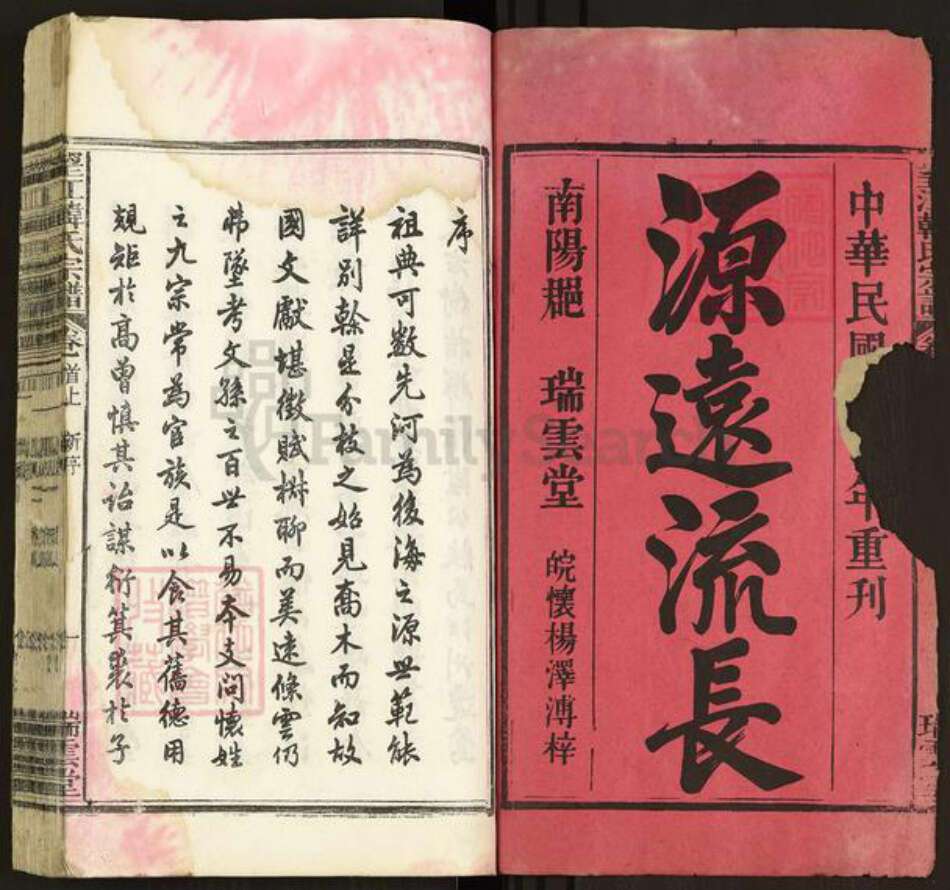 中華民國
年重刊
源遠流長
南陽郡 瑞雲堂 皖懷楊澤溥梓
序
祖典可數先河為後海之源世範能
詳別幹是分枝之始見喬木而知故
國文獻堪徵賦椒聊而美遠條雲仍
弗墜考文孫之百世不易本支問懷姓
之九宗常為官族是以食其舊德用
規矩於高曾慎其詒謀衍箕裘於子
韓氏宗譜
首上 新序 一
瑞雲堂
FamilySearch